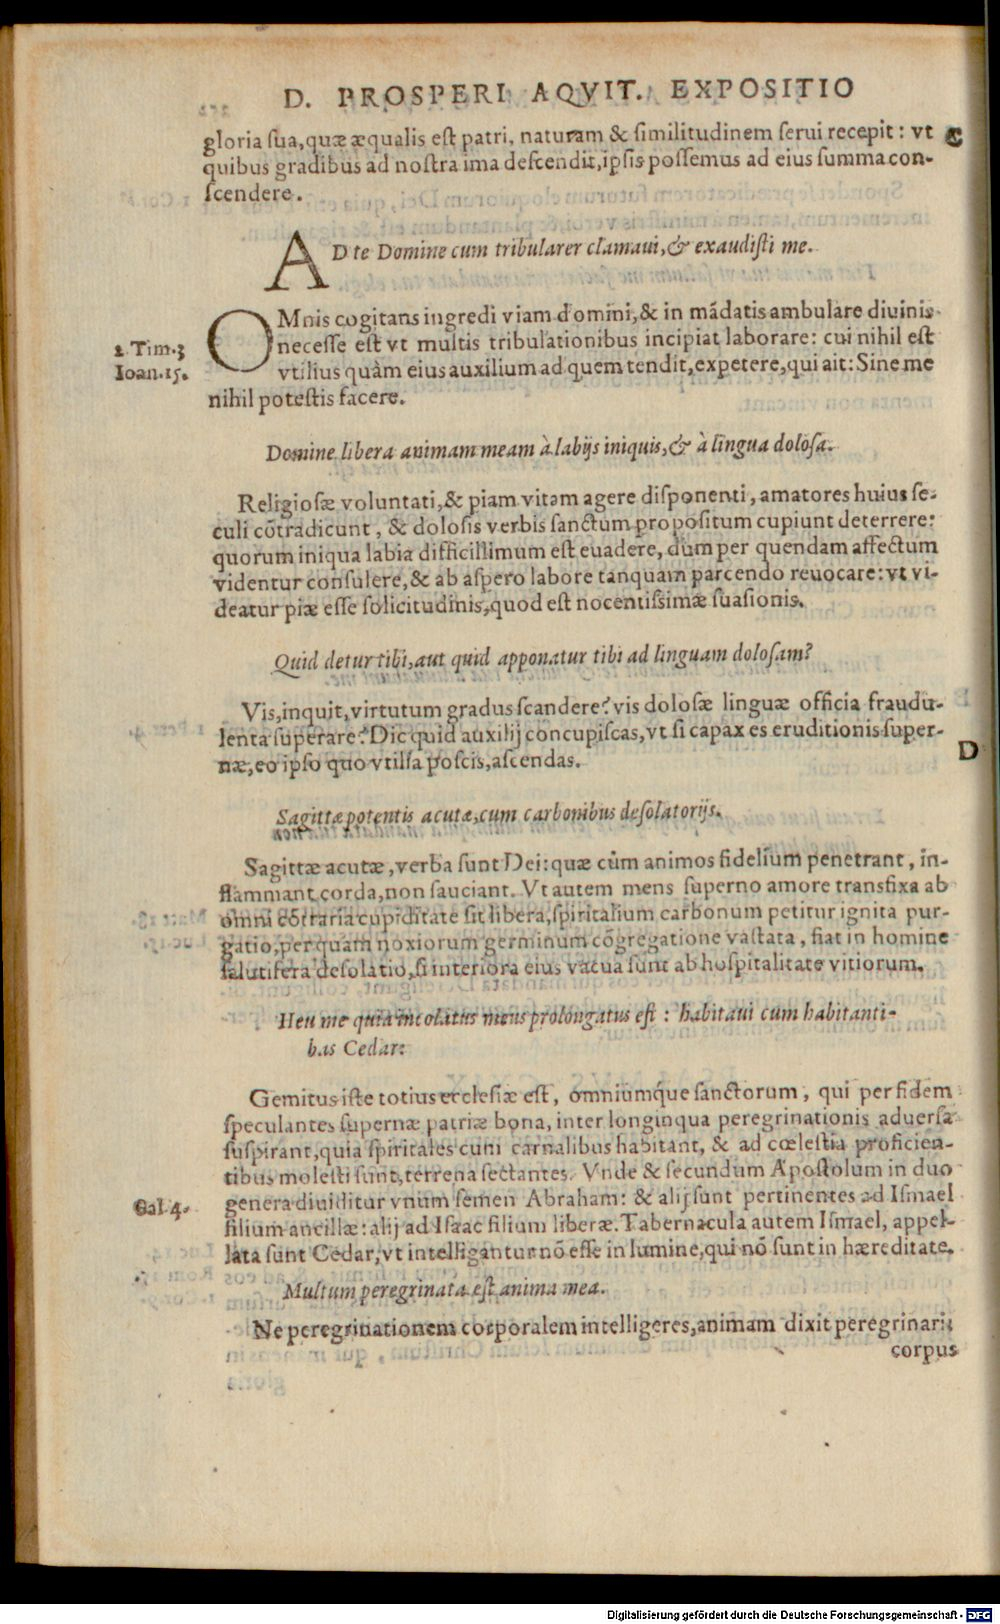 D. PROSPERI AQVIT. EXPOSITIO
gloria sua, quæ æqualis est patri, naturam & similitudinem serui recepit: vt C
quibus gradibus ad nostra ima descendit, ipsis possemus ad eius summa con-
scendere.
AD te Domine cum tribularer clamaui, & exaudisti me.
OMnis cogitans ingredi viam domini, & in mãdatis ambulare diuinis
necesse est vt multis tribulationibus incipiat laborare: cui nihil est
vtilius quàm eius auxilium ad quem tendit, expetere, qui ait: Sine me
nihil potestis facere.
2. Tim. 3
Ioan. 15.
Domine libera animam meam à labijs iniquis, & à lingua dolosa.
Religiosæ voluntati, & piam vitam agere disponenti, amatores huius se-
culi cõtradicunt, & dolosis verbis sanctum propositum cupiunt deterrere:
quorum iniqua labia difficillimum est euadere, dum per quendam affectum
videntur consulere, & ab aspero labore tanquam parcendo reuocare: vt vi-
deatur piæ esse solicitudinis, quod est nocentissimæ suasionis.
Quid detur tibi, aut quid apponatur tibi ad linguam dolosam?
Vis, inquit, virtutum gradus scandere? vis dolosæ linguæ officia fraudu-
lenta superare? Dic quid auxilij concupiscas, vt si capax es eruditionis super-
næ, eo ipso quo vtilia poscis, ascendas.
D
Sagittæ potentis acutæ, cum carbonibus desolatorijs.
Sagittæ acutæ, verba sunt Dei: quæ cùm animos fidelium penetrant, in-
flammant corda, non sauciant. Vt autem mens superno amore transfixa ab
omni cõtraria cupiditate sit libera, spiritalium carbonum petitur ignita pur-
gatio, per quam noxiorum germinum cõgregatione vastata, fiat in homine
salutifera desolatio, si interiora eius vacua sunt ab hospitalitate vitiorum.
Heu me quia incolatus meus prolongatus est: habitaui cum habitanti-
bus Cedar:
Gemitus iste totius ecclesiæ est, omniumq́ue sanctorum, qui per fidem
speculantes supernæ patriæ bona, inter longinqua peregrinationis aduersa
suspirant, quia spiritales cum carnalibus habitant, & ad cœlestia proficien-
tibus molesti sunt, terrena sectantes. Vnde & secundum Apostolum in duo
genera diuiditur vnum semen Abraham: & alij sunt pertinentes ad Ismael
filium ancillæ: alij ad Isaac filium liberæ. Tabernacula autem Ismael, appel-
lata sunt Cedar, vt intelligantur nõ esse in lumine, qui nõ sunt in hæreditate.
Gal. 4.
Multum peregrinata est anima mea.
Ne peregrinationem corporalem intelligeres, animam dixit peregrinari:
corpus
Digitalisierung gefördert durch die Deutsche Forschungsgemeinschaft - DFG